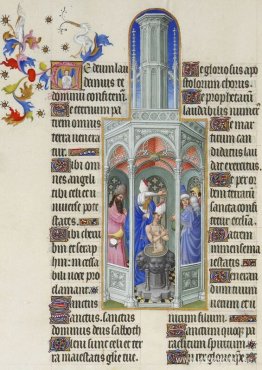 Te deum lau
damus te
dominum confitemur.
Te eternum pa
trem omnis
terra venera
tur.
Tibi om
nes angeli
tibi celi et
universe potes
tates.
Tibi cheru
bin et seraph
in: incessa
bili voce pro
clamant.
Sanctus
Sanctus. sanctus
dominus deus sabaoth
Pleni sunt celi et ter
ra maiestatis glie tue.
Te gloriosus apos
tolorum chorus.
Te prophetarum
laudabilis numerus
Te mar
tirum can
didatus lau
dat exercitus.
Te per or
bem terrarum
sancta confi
tetur ecclesia.
Patrem
immense ma
iestatis.
Veneran
dum tuum verum et u
nicum filium.
Sanctum quoque pa
raclitum spiritum
Tu rex glorie xpe.